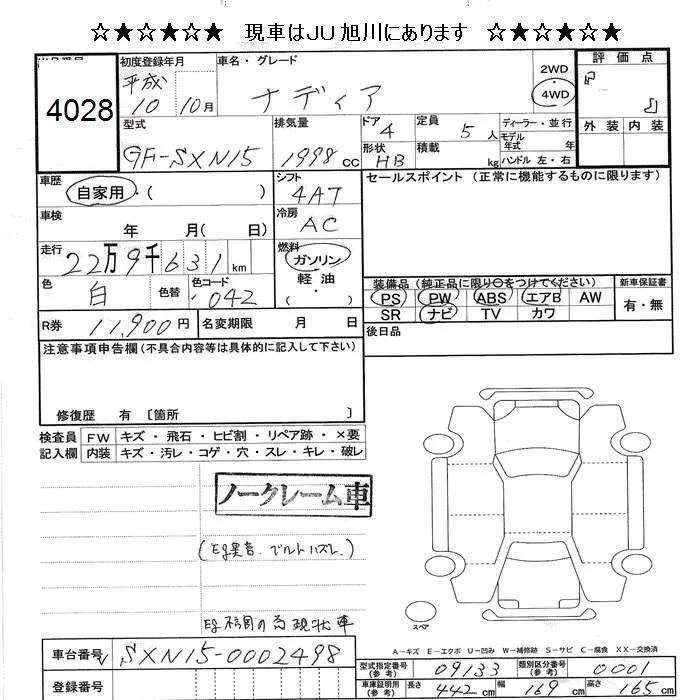 ☆★☆★☆★ 現車はJU 旭川にあります ☆★☆★☆★
初度登録年月 車名・グレード 評価点
4028 平成 10 10月 ナディア 2WD 4WD
型式 排気量 ドア 定員 ディーラー・並行 外装 内装
GF-SXN15 1998 cc 4 5人 モデル年式 年
形状 HB 積載 kg ハンドル 左・右
車歴 自家用・( ) シフト 4AT セールスポイント (正常に機能するものに限ります)
車検 年 月( 日) 冷房 AC
走行 22万9千631 km 燃料 ガソリン
軽油
・( )
色 白 色替 色コード 042
装備品 (純正品に限り○をつけてください) 新車保証書
PS PW ABS エアB AW 有・無
SR ナビ TV カワ
R券 11,900円 名変期限 月 日
後日品
注意事項申告欄 (不具合内容等は具体的に記入して下さい)
修復歴 有 〔箇所 〕
検査員 FW キズ・飛石・ヒビ割・リペア跡・×要
記入欄 内装 キズ・汚レ・コゲ・穴・スレ・キレ・破レ
ノークレーム車
(Eg異音.ベルトハズレ.)
スペア
Eg不調の為現状車
A-キズ E-エクボ U-凹み W-補修跡 S-サビ C-腐食 XX-交換済
車台番号 SXN15-0002498
型式指定番号(参考) 09133 類別区分番号(参考) 0001
登録番号
車庫証明用(参考) 長さ 442 cm 幅 169 cm 高さ 165 cm